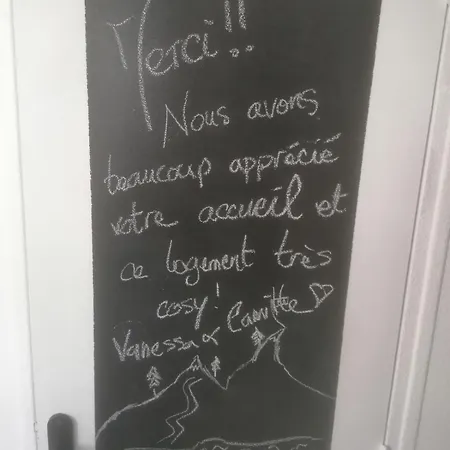 Merci!!
Nous avons
beaucoup apprécié
votre accueil et
ce logement très
cosy!
Vanessa & Camille